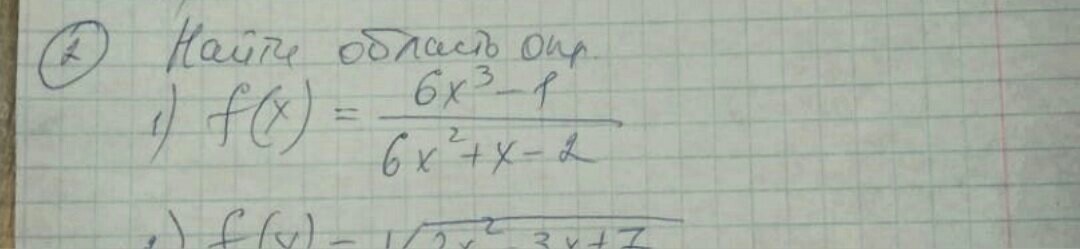 2 Найти область опр.
1) f(x) = \frac{6x^3-1}{6x^2+x-2}
2) f(x) = \sqrt{2x^2-3x+7}